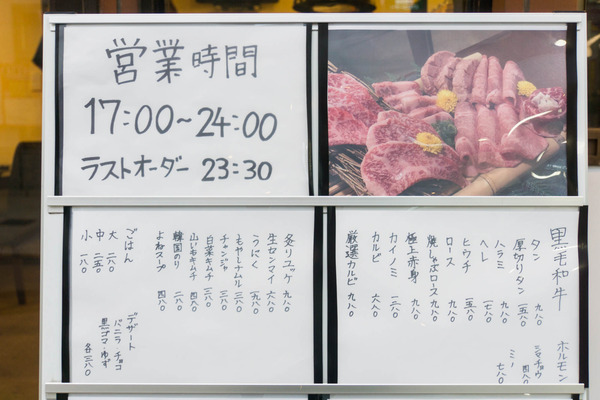 営業時間
17:00~24:00
ラストオーダー 23:30
黒毛和牛
タン 九八〇
厚切りタン 一五八〇
ハラミ 九八〇
ヘレ 一七八〇
ヒウチ 一五八〇
ロース 九八〇
焼しゃぶロース 九八〇
極上赤身 九八〇
カイノミ 一二八〇
カルビ 六八〇
厳選カルビ 九八〇
ホルモン
シマチョウ 四八〇
ミノ 七八〇
炙りユッケ 九八〇
生センマイ 六八〇
こうにく 一九八〇
もやしナムル 三八〇
チャンジャ 三八〇
白菜キムチ 三八〇
山いもキムチ 四八〇
韓国のり 二八〇
よねスープ 四八〇
ごはん
大 二八〇
中 二五〇
小 一八〇
デザート
バニラ・チョコ
黒ゴマ・ゆず
各三八〇